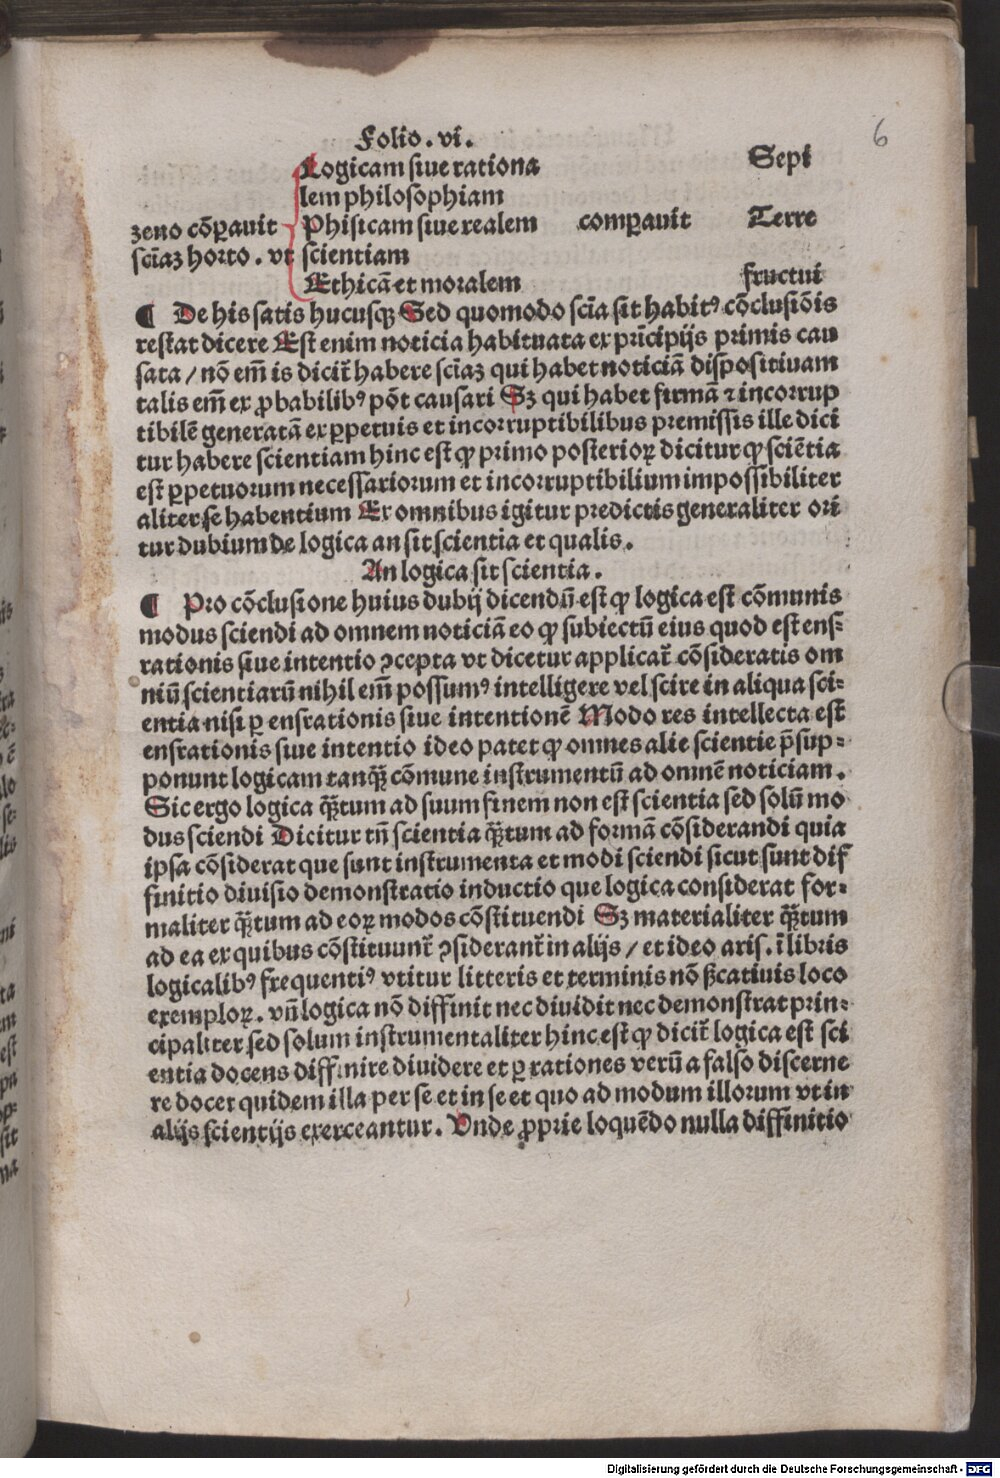 6
Folio. vi.
Logicam siue rationa Sepi
lem philosophiam
zeno cōꝑauit Phisicam siue realem comꝑauit Terre
sciāꝫ horto. vt scientiam
Ethicā et moralem fructui
¶ De his satis hucusqꝫ Sed quomodo sciā sit habitꝰ cōclusiōis
restat dicere Est enim noticia habituata ex prīcipijs primis cau
sata / nō em̄ is dicit̄ habere sciāꝫ qui habet noticiā dispositiuam
talis em̄ ex ꝓbabilibꝰ pōt causari Sꝫ qui habet firmā ⁊ incorrup
tibilē generatā ex ꝑpetuis et incorruptibilibus premissis ille dici
tur habere scientiam hinc est ꝙ primo posterioꝝ dicitur ꝙ sciētia
est ꝑpetuorum necessariorum et incorruptibilium impossibiliter
aliter se habentium Ex omnibus igitur predictis generaliter ori
tur dubium de logica an sit scientia et qualis.
An logica sit scientia.
¶ Pro cōclusione huius dubij dicendū est ꝙ logica est cōmunis
modus sciendi ad omnem noticiā eo ꝙ subiectū eius quod est ens
rationis siue intentio ꝯcepta vt dicetur applicat̄ cōsideratis om
niū scientiarū nihil em̄ possumꝰ intelligere vel scire in aliqua sci⸗
entia nisi ꝑ ensrationis siue intentionē Modo res intellecta est
ensrationis siue intentio ideo patet ꝙ omnes alie scientie p̄sup⸗
ponunt logicam tanqꝫ̄ cōmune instrumentū ad omnē noticiam.
Sic ergo logica qꝫ̄tum ad suum finem non est scientia sed solū mo
dus sciendi Dicitur tn̄ scientia qꝫ̄tum ad formā cōsiderandi quia
ipsa cōsiderat que sunt instrumenta et modi sciendi sicut sunt dif
finitio diuisio demonstratio inductio que logica considerat for⸗
maliter qꝫ̄tum ad eoꝝ modos cōstituendi Sꝫ materialiter qꝫ̄tum
ad ea ex quibus cōstituunt̄ ꝯsiderant̄ in alijs / et ideo aris. ī libris
logicalibꝰ frequentiꝰ vtitur litteris et terminis nō ßcatiuis loco
exemploꝝ. vn̄ logica nō diffinit nec diuidit nec demonstrat prin⸗
cipaliter sed solum instrumentaliter hinc est ꝙ dicit̄ logica est sci
entia docens diffinire diuidere et ꝑ rationes verū a falso discerne
re docet quidem illa per se et in se et quo ad modum illorum vt in
alijs scientijs exerceantur. Vnde ꝓprie loquēdo nulla diffinitio
Digitalisierung gefördert durch die Deutsche Forschungsgemeinschaft - DFG